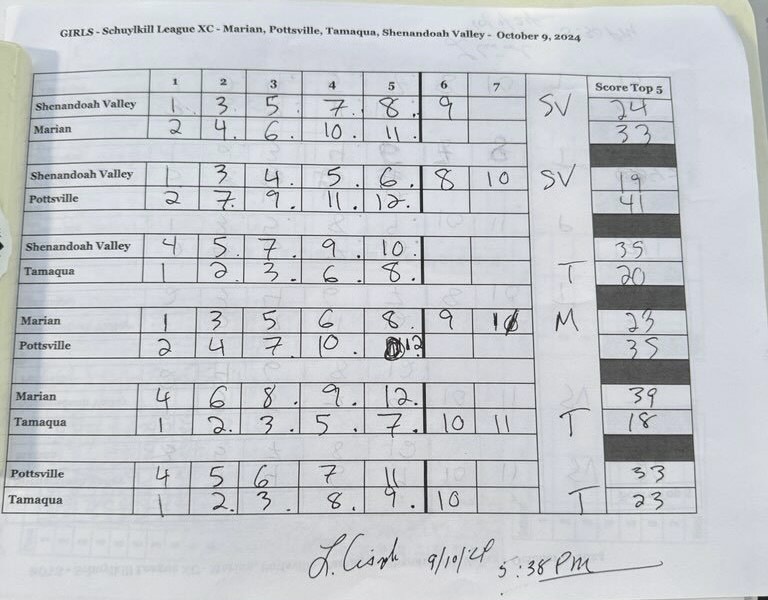 GIRLS - Schuylkill League XC - Marian, Pottsville, Tamaqua, Shenandoah Valley - October 9, 2024
1 2 3 4 5 6 7 Score Top 5
Shenandoah Valley 1 3. 5. 7. 8. 9 SV 24
Marian 2 4. 6. 10. 11. 33
Shenandoah Valley 1 3 4. 5. 6. 8 10 SV 19
Pottsville 2 7. 9. 11. 12. 41
Shenandoah Valley 4 5. 7. 9. 10. 35
Tamaqua 1 2. 3. 6. 8. T 20
Marian 1 3 5 6 8. 9 M 23
Pottsville 2 4 7. 10. 12 35
Marian 4 6 8. 9. 12. 39
Tamaqua 1 2. 3. 5. 7. 10 11 T 18
Pottsville 4 5 6 7 11 33
Tamaqua 1 2. 3. 8. 9. 10 T 23
5:38 PM